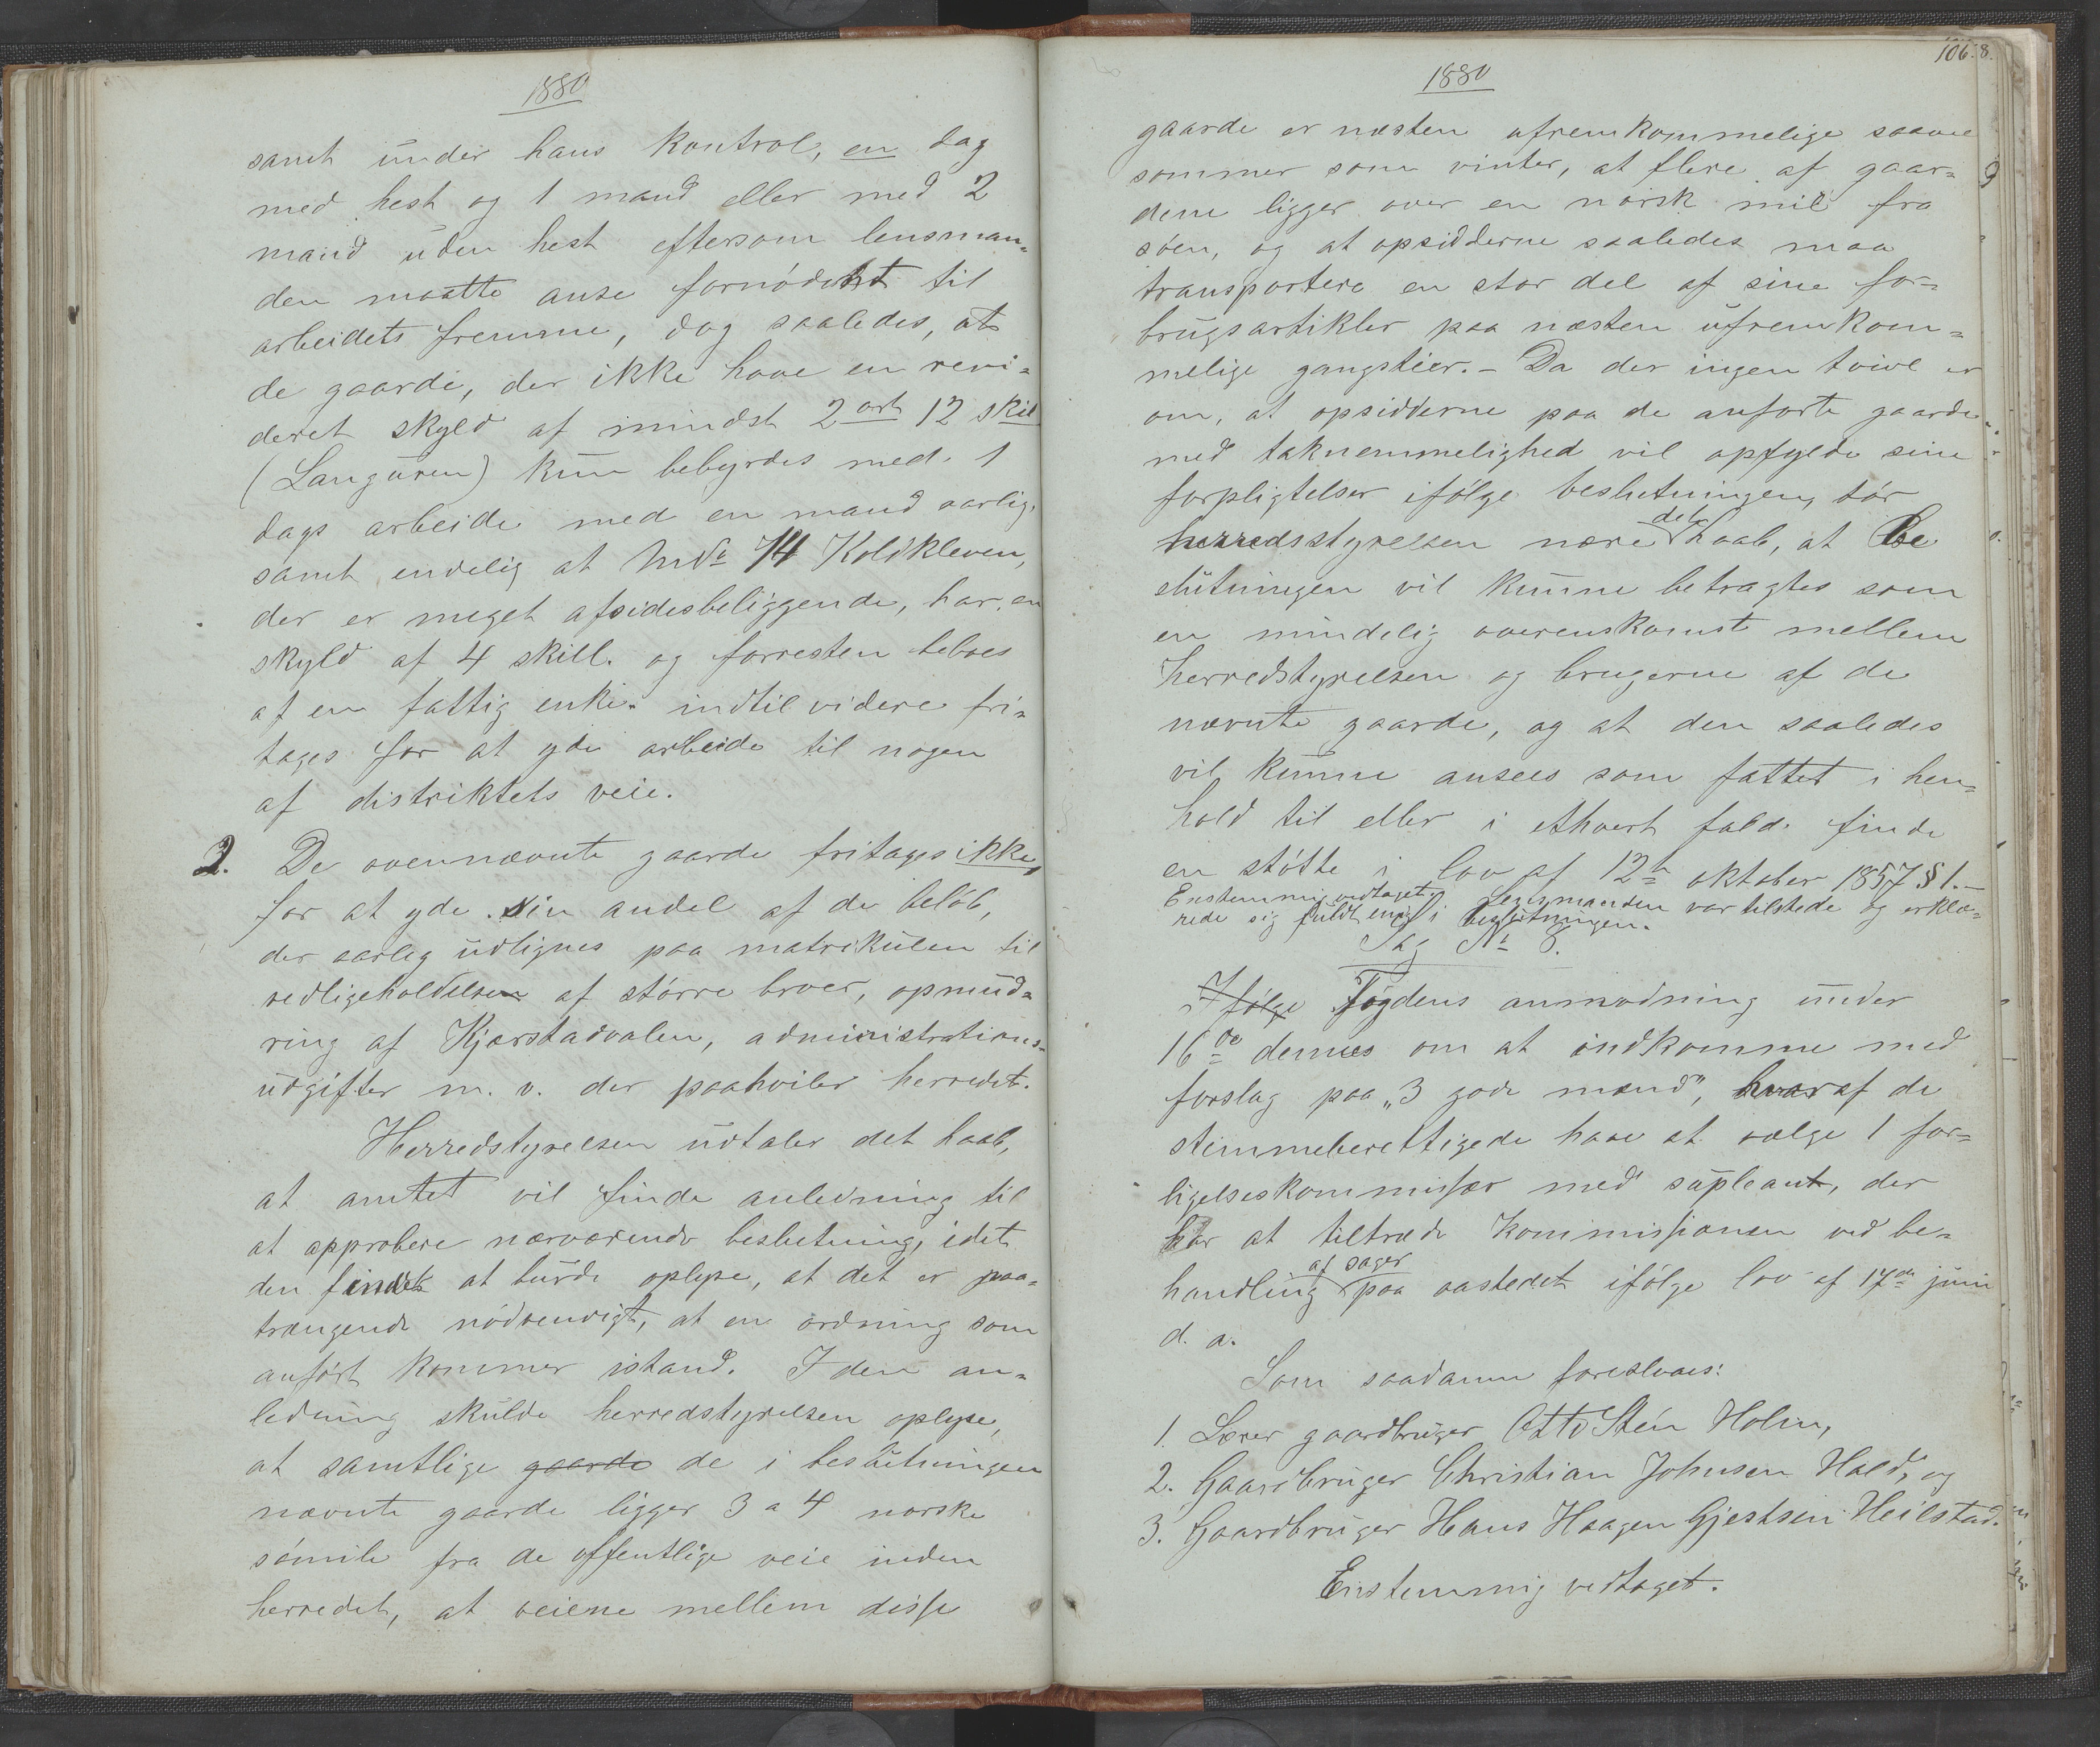 1880
samt under hans kontrol, en dag
med hest og 1 mand eller med 2
mand uden hest eftersom lensman-
den maatte anse fornødent til
arbeidets fremme, dog saaledes, at
de gaarde, der ikke have en revi-
deret skyld af mindst 2 ort 12 skil
(Languren) kun bebyrdes med 1
dags arbeide med en mand aarlig,
samt endelig at Mno 74 Koldkleven,
der er meget afsidesbeliggende, har en
skyld af 4 skill. og forresten beboes
af en fattig enke. indtil videre fri-
tages for at yde arbeide til nogen
af distriktets veie.
2. De ovennævnte gaarde fritages ikke
for at yde sin andel af de beløb,
der aarlig udlignes paa matrikulen til
vedligeholdelsen af større broer, opmud-
ring af Kjærstadvalen, administrations-
udgifter m. v. der paahviler herredet.
Herredstyrelsen udtaler det haab,
at amtet vil finde anledning til
at approbere nærværende beslutning, idet
den findet at burde oplyse, at det er paa-
trængende nødvendigt, at en ordning som
anført kommer istand. I den an-
ledning skulde herredstyrelsen oplyse,
at samtlige gaarde de i beslutningen
nævnte gaarde ligger 3 a 4 norske
sømile fra de offentlige veie inden
herredet, at veiene mellem disse
106. 8.
1880
gaarde er næsten ufremkommelige saavel
sommer som vinter, at flere af gaar-
dene ligger over en norsk mil fra
søen, og at opsidderne saaledes maa
transportere en stor del af sine for-
brugsartikler paa næsten ufremkom-
melige gangstier. - Da der ingen tvivl er
om, at opsidderne paa de anførte gaarde
med taknemmelighed vil opfylde sine
forpligtelser ifølge beslutningen, tør
herredsstyrelsen nære det haab, at be
slutningen vil kunne betragtes som
en mindelig overenskomst mellem
herredstyrelsen og brugerne af de
nævnte gaarde, og at den saaledes
vil kunne ansees som fattet i hen-
hold til eller i ethvert fald finde
en støtte i lov af 12te oktober 1857 § 1. -
Enstemmig vedtaget. Lensmanden var tilstede og erklæ-
rede sig fuldt enig i beslutningen.
Sag No 8.
Ifølge Fogdens anmodning under
16de dennes om at indkomme med
forslag paa "3 gode mænd", hvoraf de
stemmeberettigede have at vælge 1 for-
ligelseskommissær med supleant, der
har at tiltræde kommissionen ved be-
handling af sager paa aastedet ifølge lov af 17de juni
d. a.
Som saadanne foreslaaes:
1. Lærer gaardbruger Otto Stén Holm,
2. Gaardbruger Christian Johnsen Hald, og
3. Gaardbruger Hans Haagen Gjestsen Heilstad.
Enstemmig vedtaget.